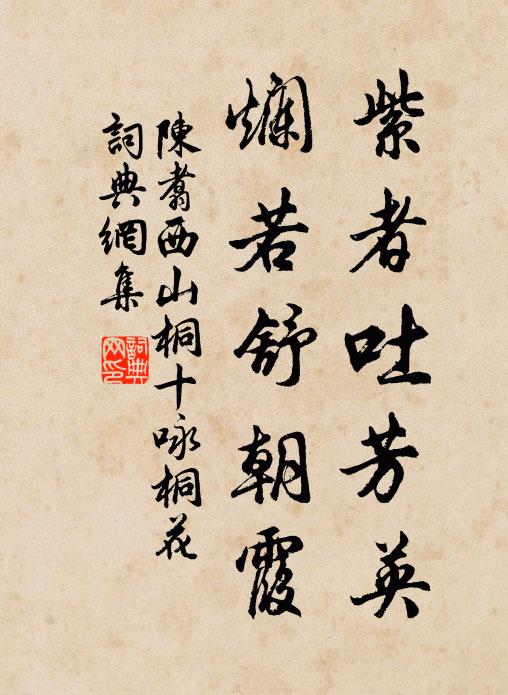 紫者吐芳英
爛若舒朝霞
陳翥西山桐十咏桐花
詞典網集
詞典網印